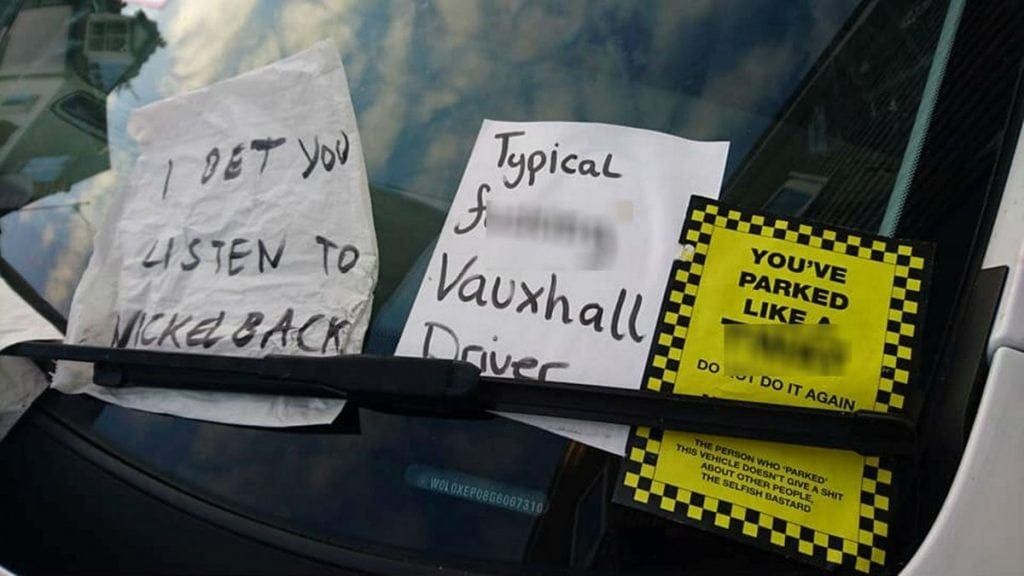 I BET YOU
LISTEN TO
NICKELBACK
Typical
Vauxhall
Driver
YOU'VE
PARKED
LIKE A
DO NOT DO IT AGAIN
THE PERSON WHO 'PARKED'
THIS VEHICLE DOESN'T GIVE A SHIT
ABOUT OTHER PEOPLE,
THE SELFISH BASTARD